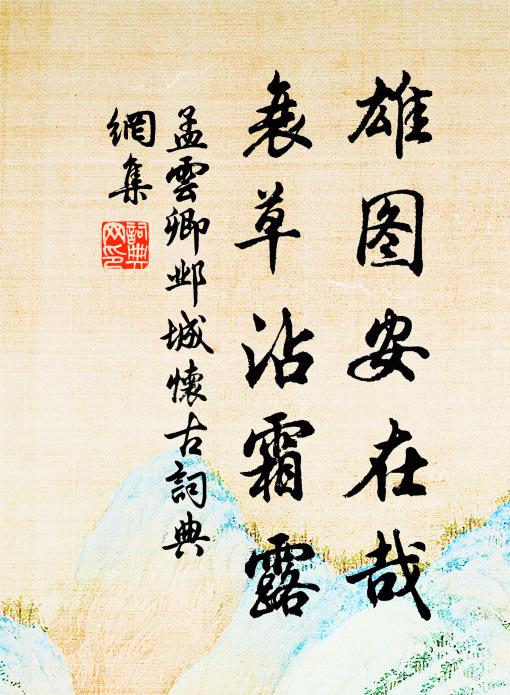 雄图安在哉
衰草沾霜露
孟雲卿邺城懷古詞典
網集
詞典
网印